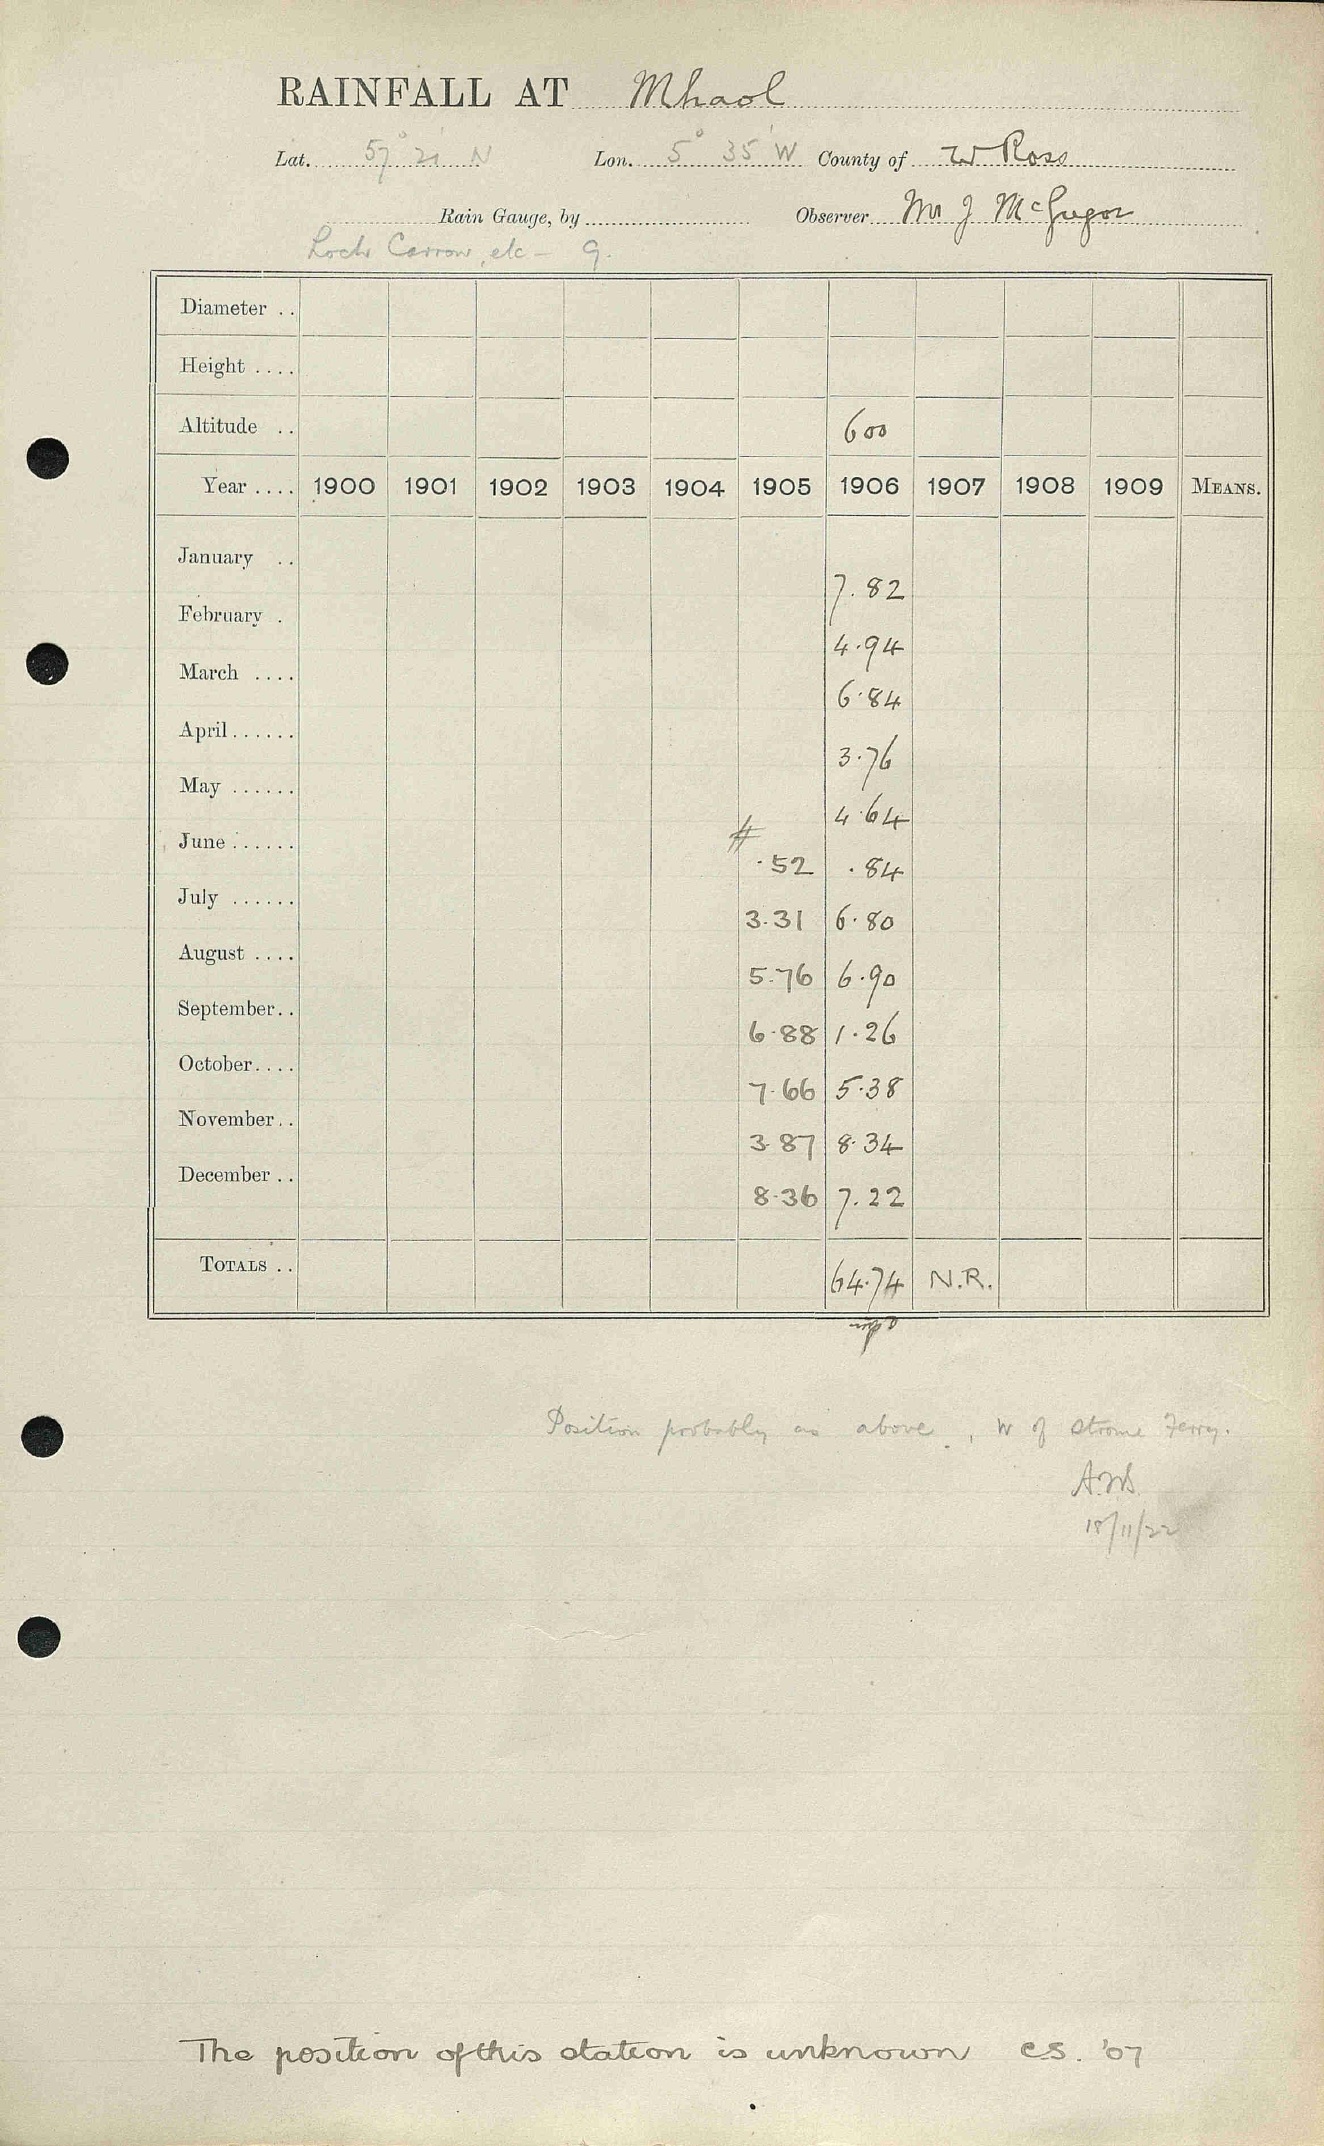 RAINFALL AT Mhaol
Lat. 57° 21' N Lon. 5° 35' W County of W Ross
Rain Gauge, by Observer Mr J McGregor
Loch Carron, etc - 9.
Diameter ..
Height ....
Altitude .. 600
Year .... 1900 1901 1902 1903 1904 1905 1906 1907 1908 1909 MEANS.
January .. 7.82
February . 4.94
March .... 6.84
April ...... 3.76
May ...... 4.64
June ...... # .52 .84
July ...... 3.31 6.80
August .... 5.76 6.90
September.. 6.88 1.26
October.... 7.66 5.38
November.. 3.87 8.34
December .. 8.36 7.22
TOTALS .. 64.74 N.R.
Position probably as above, W of Strome Ferry.
18/11/22
The position of this station is unknown C.S. '07